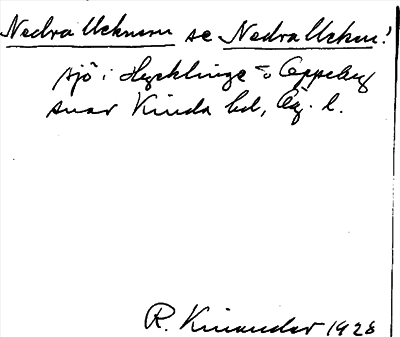 Nedra Ucknern se Nedra Ucken!
sjö i Hycklinge o Oppeby
snar Kinda hd, Ög. l.
R. Kinander 1928